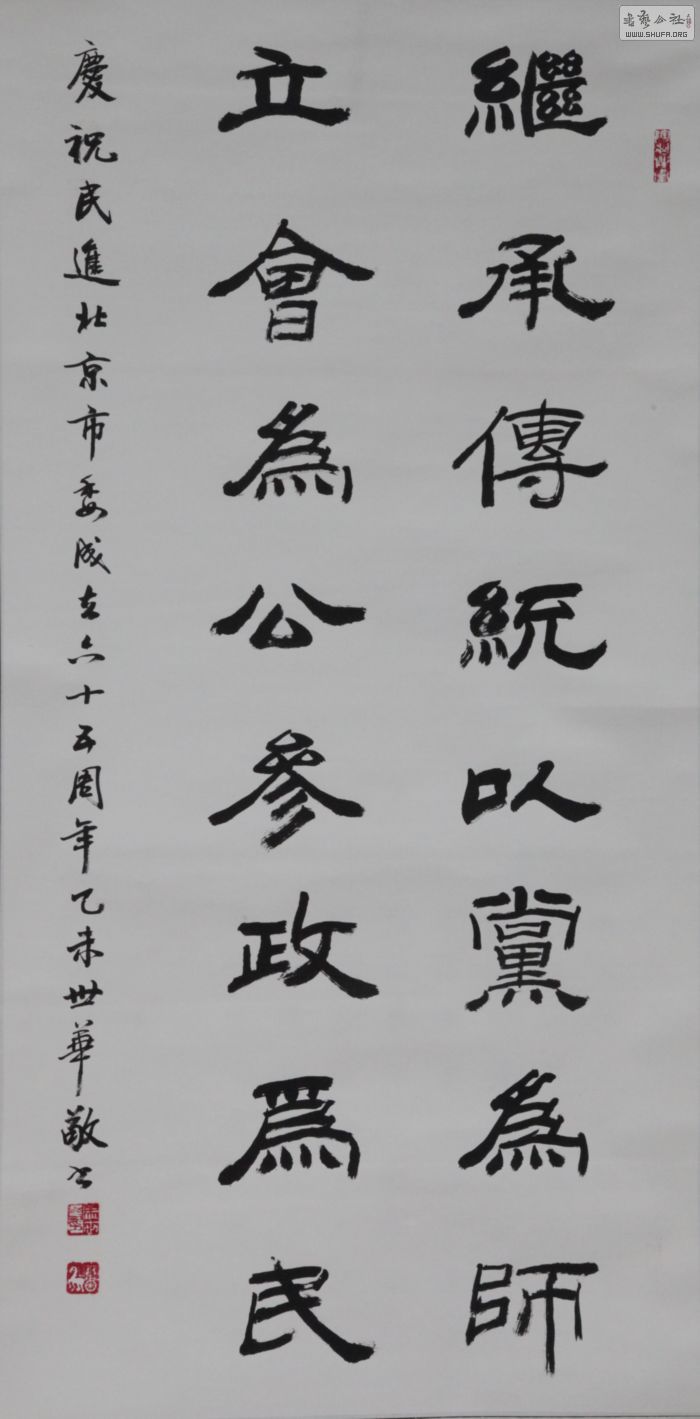 繼承傳統以黨為師
立會為公參政爲民
慶祝民進北京市委成立六十五周年乙未世華敬書
書藝公社
WWW.SHUFA.ORG